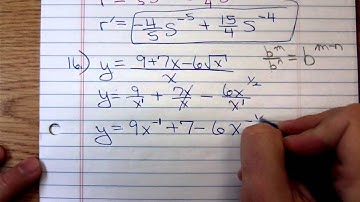 r' = -4/5 S^-5 + 15/4 S^-4
16.) y = (9+7x-6√x)/x
b^m/b^n = b^(m-n)
y = 9/x^1 + 7x/x - 6x^(1/2)/x^1
y = 9x^-1 + 7 - 6x^(-1/2)